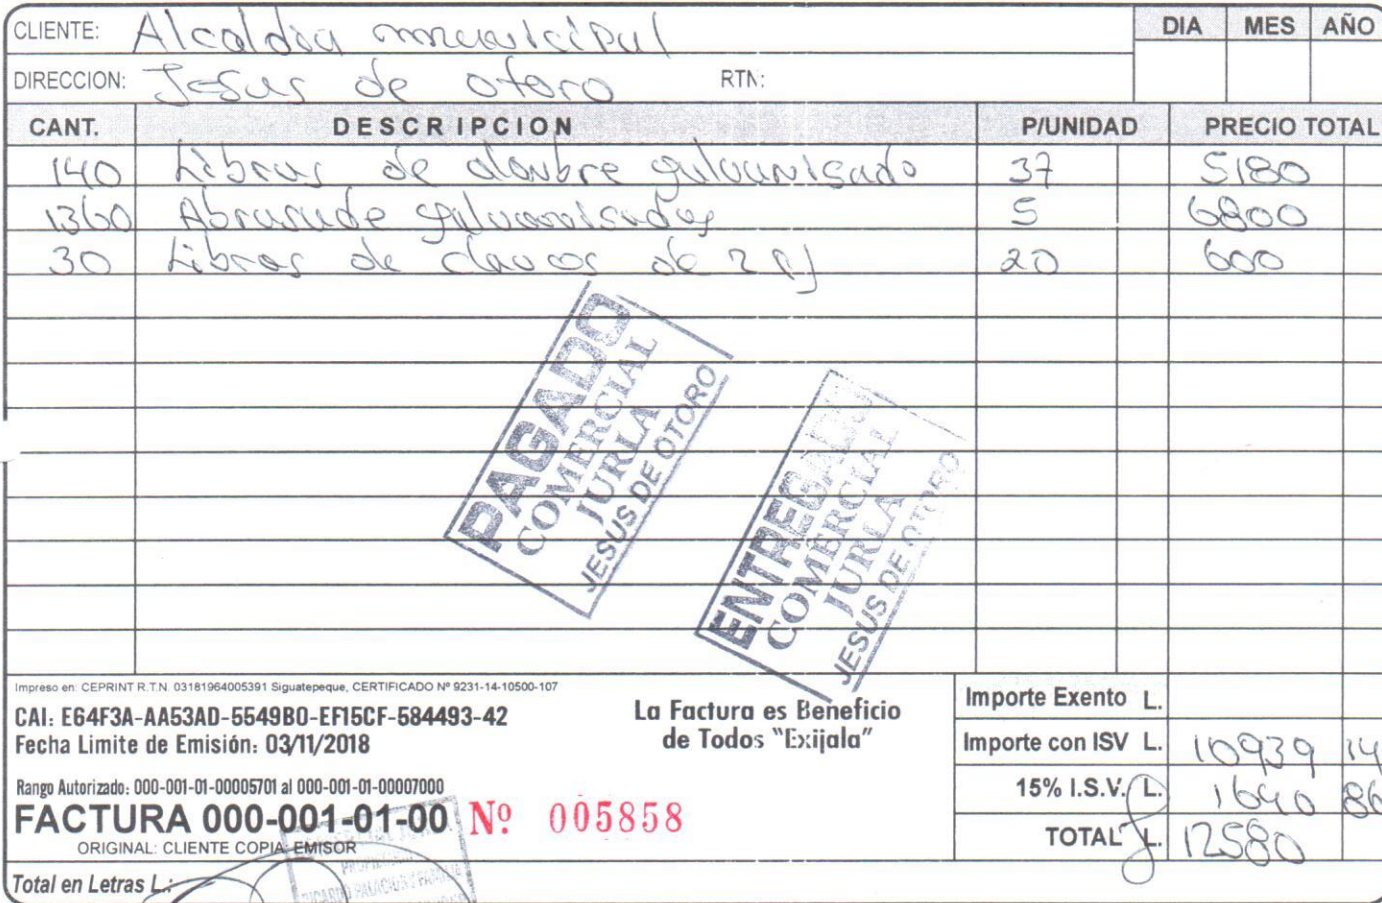 CLIENTE: Alcaldia municipal DIA MES AÑO
DIRECCION: Jesus de otoro RTN:
CANT. DESCRIPCION P/UNIDAD PRECIO TOTAL
140 Libras de alambre galvanisado 37 5180
1360 Abrasade galvanisadas 5 6800
30 Libras de clavos de 2 pj 20 600
PAGADO
COMERCIAL
JURLA
JESUS DE OTORO
ENTREGADO
COMERCIAL
JURLA
JESUS DE OTORO
Impreso en: CEPRINT R.T.N. 03181964005391 Siguatepeque, CERTIFICADO Nº 9231-14-10500-107
CAI: E64F3A-AA53AD-5549B0-EF15CF-584493-42
Fecha Limite de Emisión: 03/11/2018
Rango Autorizado: 000-001-01-00005701 al 000-001-01-00007000
FACTURA 000-001-01-00 Nº 005858
ORIGINAL: CLIENTE COPIA: EMISOR
La Factura es Beneficio
de Todos "Exijala"
Importe Exento L.
Importe con ISV L. 10939 14
15% I.S.V. L. 1640 86
TOTAL L. 12580
Total en Letras L.: